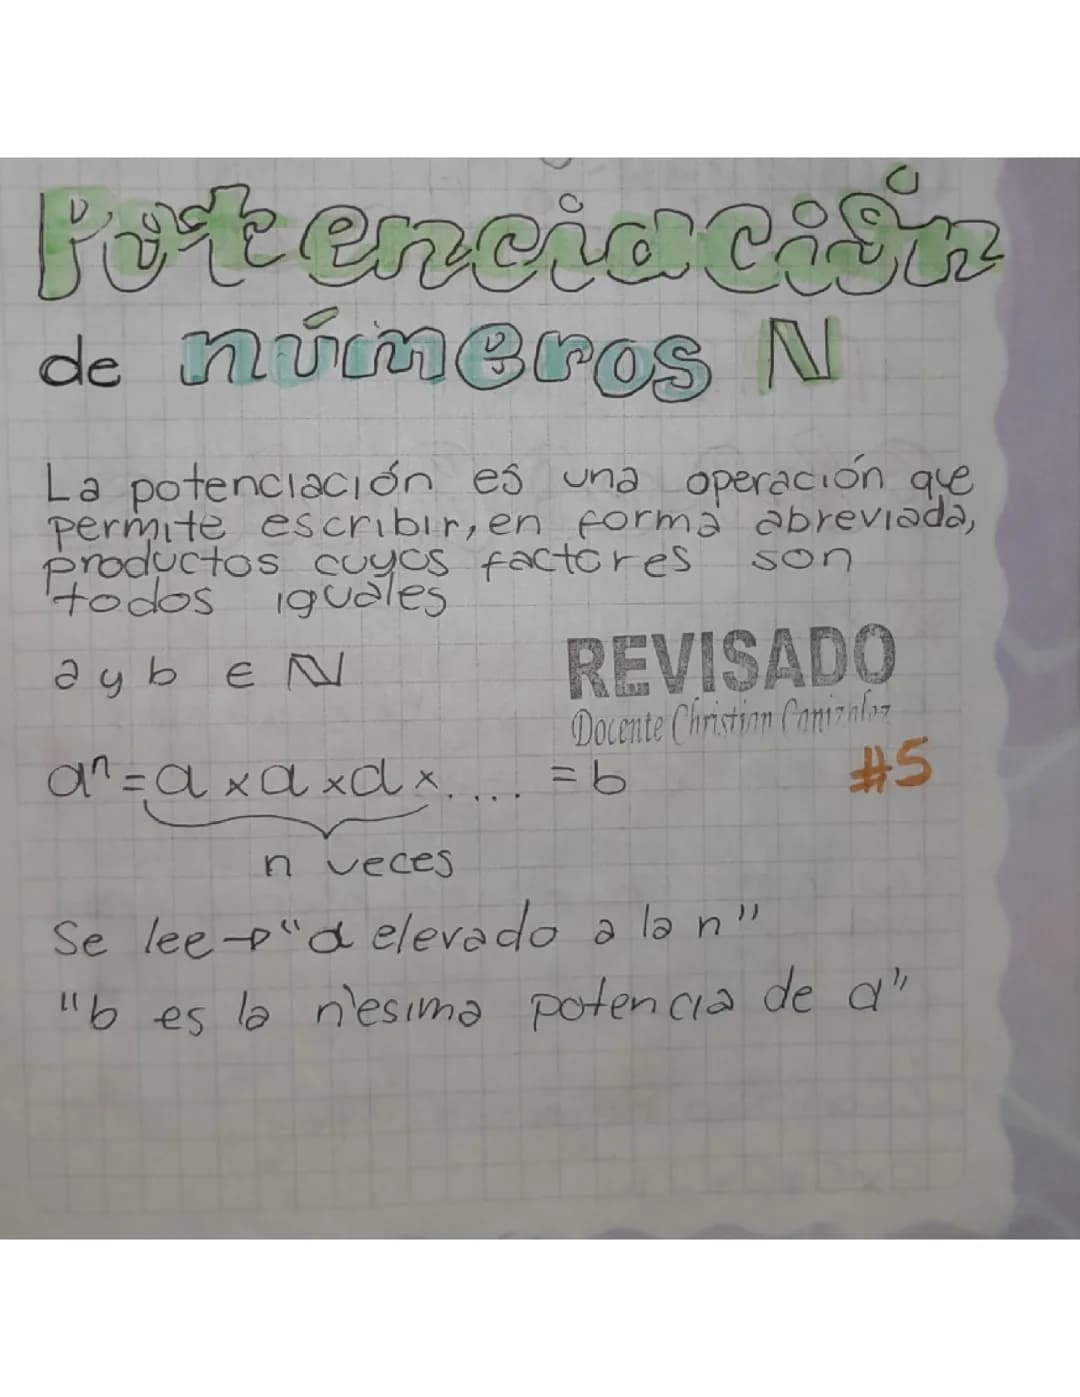 Potenciación
de números ℕ
La potenciación es una operación que
permite escribir, en forma abreviada,
productos cuyos factores son
todos iguales
a y b ∈ ℕ
REVISADO
Docente Christian Canizalez
aⁿ = a x a x a x . . . . = b
#5
n veces
Se lee → "a elevado a la n"
"b es la n'esima potencia de a"